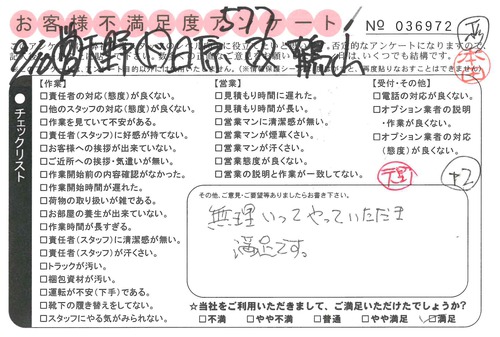 お客様不満足度アンケート
577
№ 036972
チェックリスト
【作業】
□責任者の対応(態度)が良くない。
□他のスタッフの対応(態度)が良くない。
□作業を見ていて不安がある。
□責任者(スタッフ)に好感が持てない。
□お客様への挨拶が出来ていない。
□ご近所への挨拶・気遣いが無い。
□作業開始前の内容確認がなかった。
□作業開始時間が遅れた。
□荷物の取り扱いが雑である。
□お部屋の養生が出来ていない。
□作業時間が長すぎる。
□責任者(スタッフ)に清潔感が無い。
□責任者(スタッフ)が汗くさい。
□トラックが汚い。
□梱包資材が汚い。
□運転が不安(下手)である。
□靴下の履き替えをしてない。
□スタッフにやる気がみられない。
【営業】
□見積もり時間に遅れた。
□見積もり時間が長い。
□営業マンに清潔感が無い。
□営業マンが煙草くさい。
□営業マンが汗くさい。
□営業態度が良くない。
□営業の説明と作業が一致してない。
【受付・その他】
□電話の対応が良くない。
□オプション業者の説明
・作業が良くない。
□オプション業者の対応
(態度)が良くない。
その他、ご意見・ご要望等ありましたらお書き下さい。
無理いってやっていただき
満足です。
☆当社をご利用いただきまして、ご満足いただけたでしょうか?
□不満 □やや不満 □普通 □やや満足 ☑満足